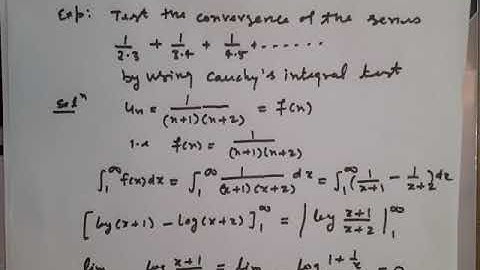 Exp: Test the convergence of the series
1/2.3 + 1/3.4 + 1/4.5 + ......
by using Cauchy's integral test
Solⁿ uₙ = 1/((n+1)(n+2)) = f(n)
i.e f(x) = 1/((x+1)(x+2))
∫₁^∞ f(x)dx = ∫₁^∞ 1/((x+1)(x+2)) dx = ∫₁^∞ (1/(x+1) - 1/(x+2)) dx
[log(x+1) - log(x+2)]₁^∞ = |log (x+1)/(x+2)|₁^∞